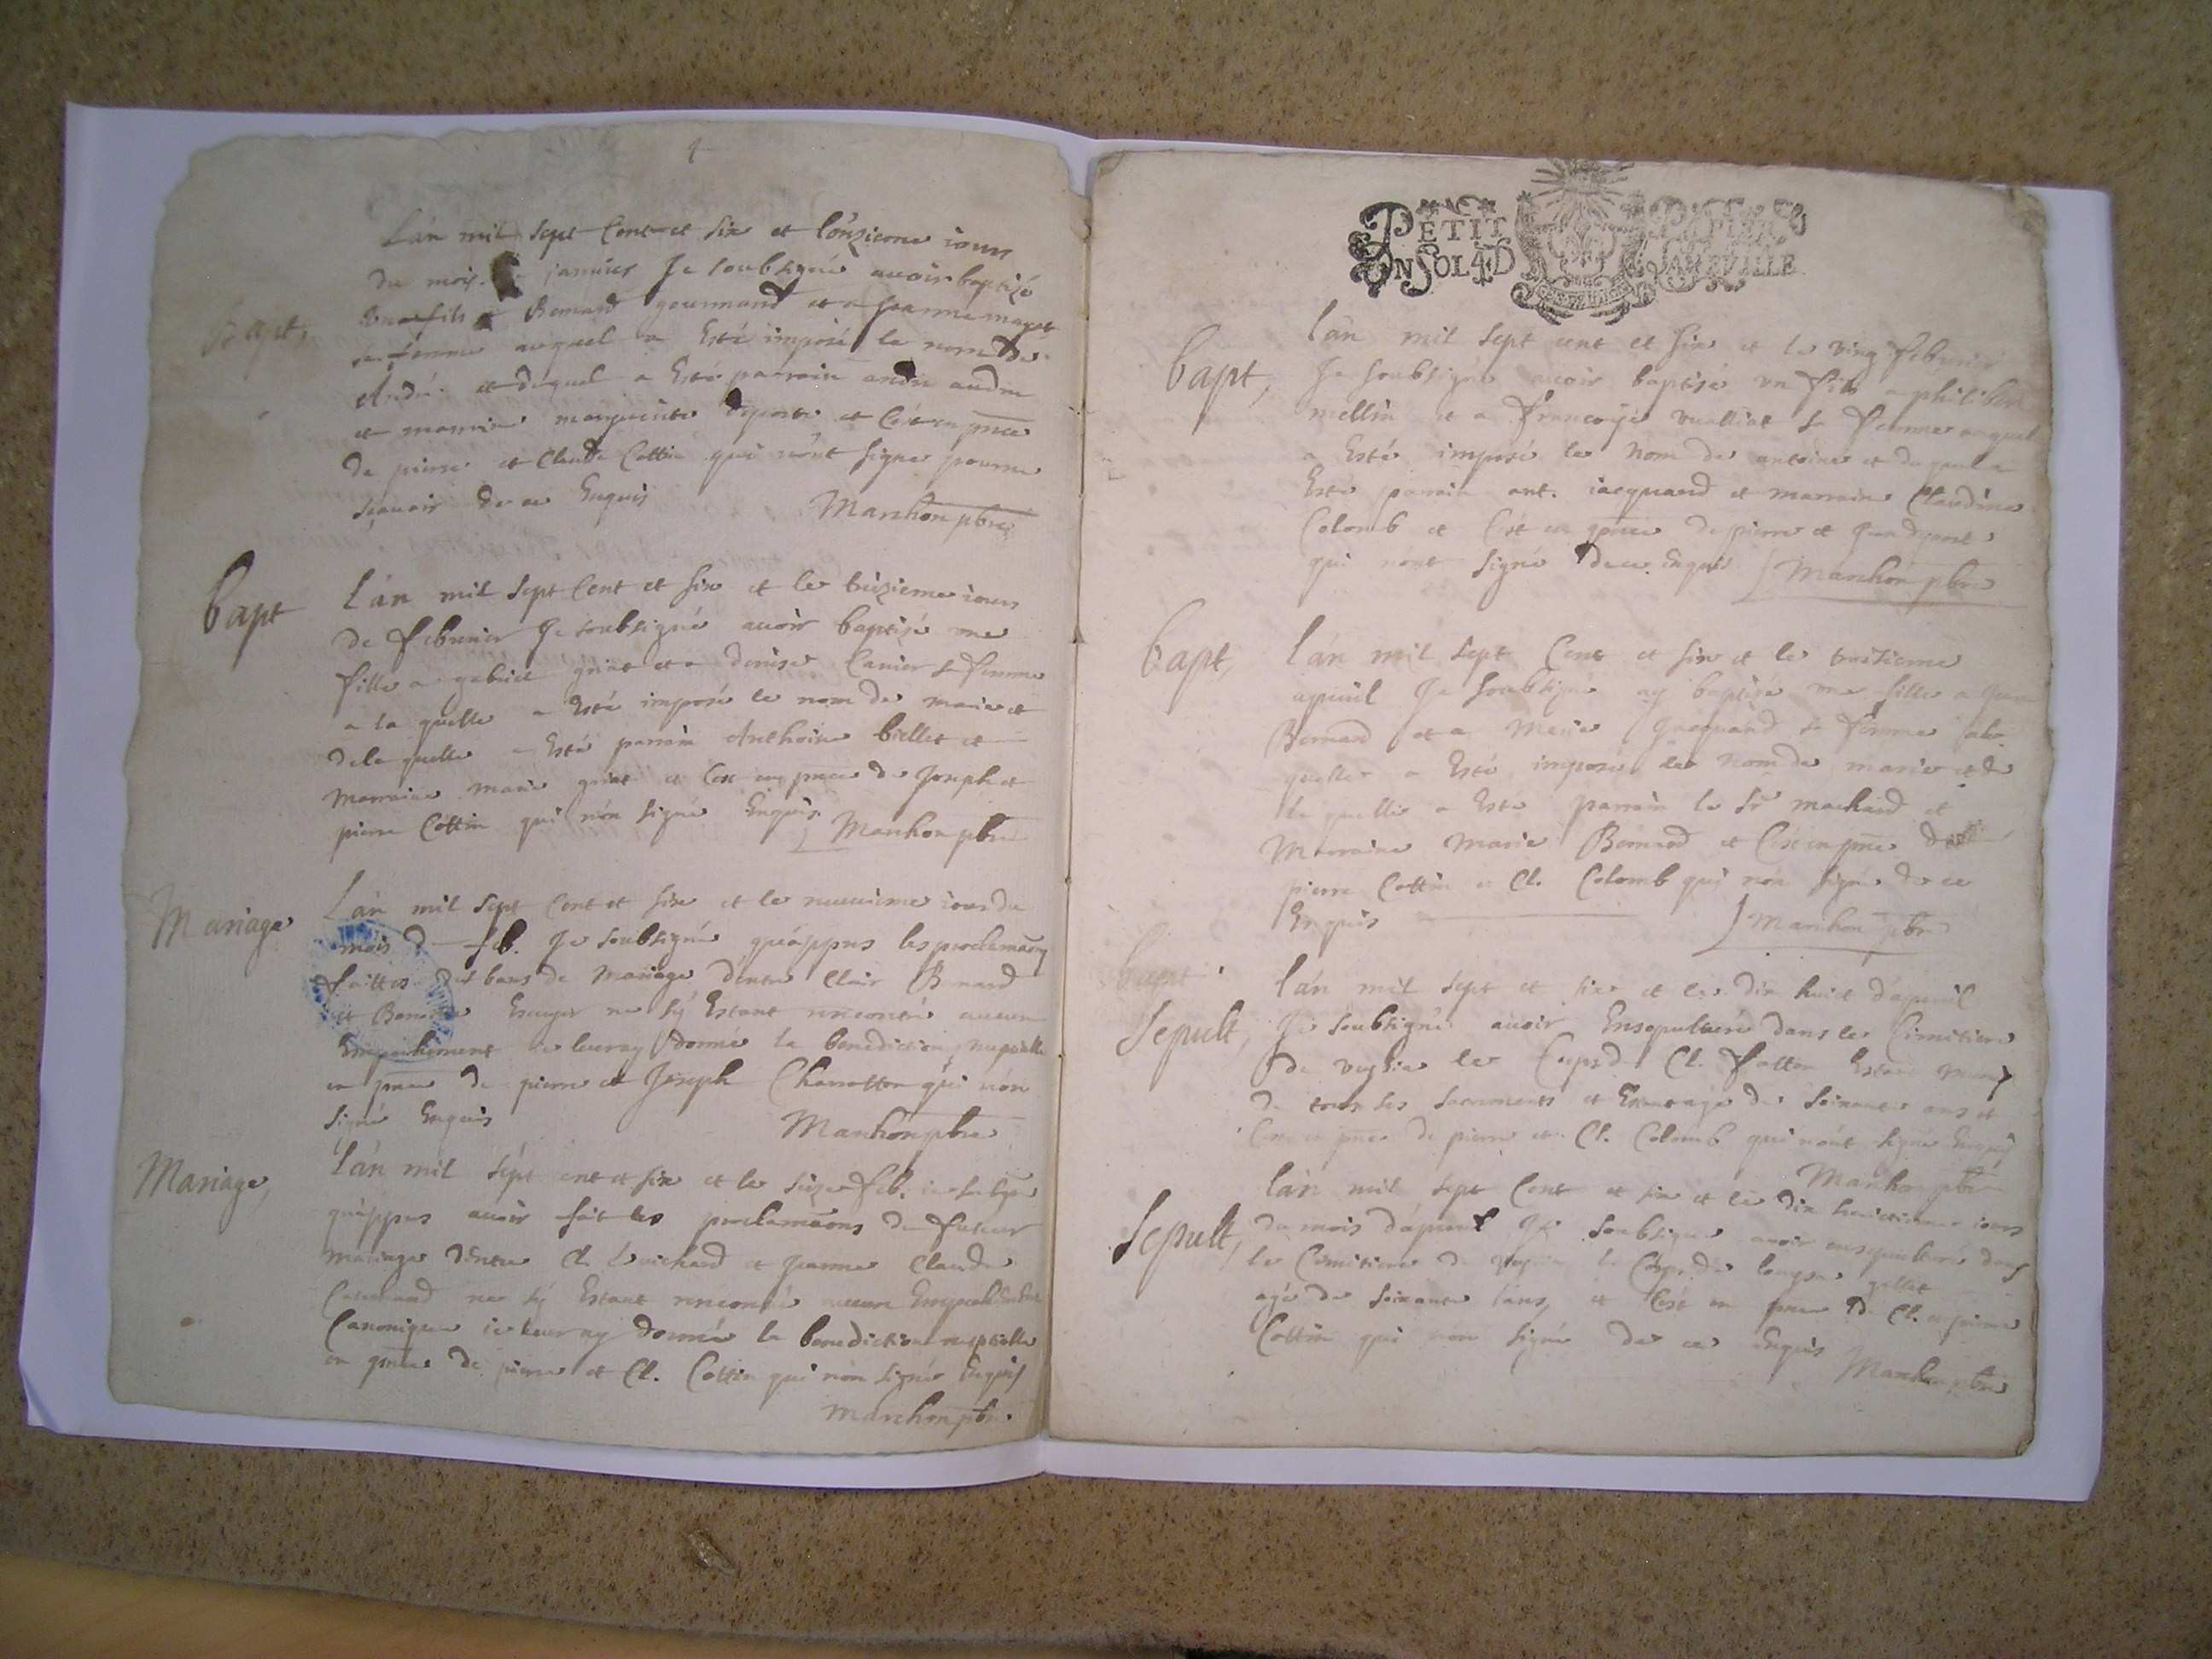 4
Bapt,
Lán mil sept Cent et six et lónzieme iour
du mois janvier Je soubsigné avoir baptizé
un fils Bernard gourmand et a jeanne
sa femme auquel a Esté imposé le nom de
André et duquel a Esté parrain andre
et marrine marguerite et Cést en pnce
de pierre et Claude Cottin qui nónt signe pour ne
sçavoir de ce Enquis
Manchon pbre
Bapt
Lán mil sept Cent et six et le treizieme iour
de febvrier Je soubsigné avoir baptisé une
fille a gabriel griat et a denise Canier sa femme
a la quelle a Esté imposé le nom de marie et
dela quelle a Esté parrain Anthoine biellet et
Marraine marie griat et Cest en pnce de Joseph et
pierre Cottin qui nón signé Enquis Manchon pbre
Mariage
Lán mil sept Cent et six et le neuvieme iour du
mois feb. Je soubsigné quáppres les proclamãons
faittes des bans de Mariage déntre Clair
et ne sý Estant rencontré aucun
Empechement ie leur ay donné la benediction nuptialle
en pnce de pierre et Joseph Charotton qui nón
signé Enquis
Manchon pbre
Mariage,
Lán mil sept cent et six et le seize feb. ie
quáppres avoir fait les proclamãons du futeur
mariage déntre Cl. et Jeanne Claude
ne sý Estant rencontré aucun Empechement
Canonique ie leur ay donné la benediction nuptialle
en pnce de pierre et Cl. Cottin qui nón signé Enquis
Manchon pbre.
PETIT PAPIER
UN SOL 4 D LA FEUILLE
Bapt,
lán mil sept cent et six et le ving febvrier
Je soubsigné avoir baptisé un fils a philibert
mellin et a francoise vualliat sa femme auquel
a Esté imposé le nom de antoine et duquel a
Esté parrain ant. iacquand et marraine Claudine
Colomb et Cést en pnce de pierre et
qui nónt signé de ce enquis Manchon pbre
Bapt,
lán mil sept Cent et six et le troisieme
apvril Je soubsigné ay baptisé une fille a
Bernard et a Marie Jacquand sa femme ala
quelle a Esté imposé le nom de marie et de
la quelle a Esté parrain le Sr machard et
Marraine Marie Bernard et Cést en pnce de
pierre Cottin et Cl. Colomb qui nón signé de ce
Enquis
Manchon pbre
bapt
Sepult,
lán mil sept et six et le dix huict dápvril
Je soubsigné avoir Ensepulturé dans le Cimitiere
de le Corps d Cl. Estant muny
de tous ses sacrements et de soixante ans et
Cést en pnce de pierre et Cl. Colomb qui nónt signé Enquis
Manchon pbre
Sepult,
lán mil sept Cent et six et le dix huictieme iour
du mois dápvril Je soubsigné avoir ensepulturé dans
le Cimitiere de le Corps de gallet
agé de soixante ans, et Cést en pnce de Cl. et pierre
Cottin qui nón signé de ce enquis
Manchon pbre